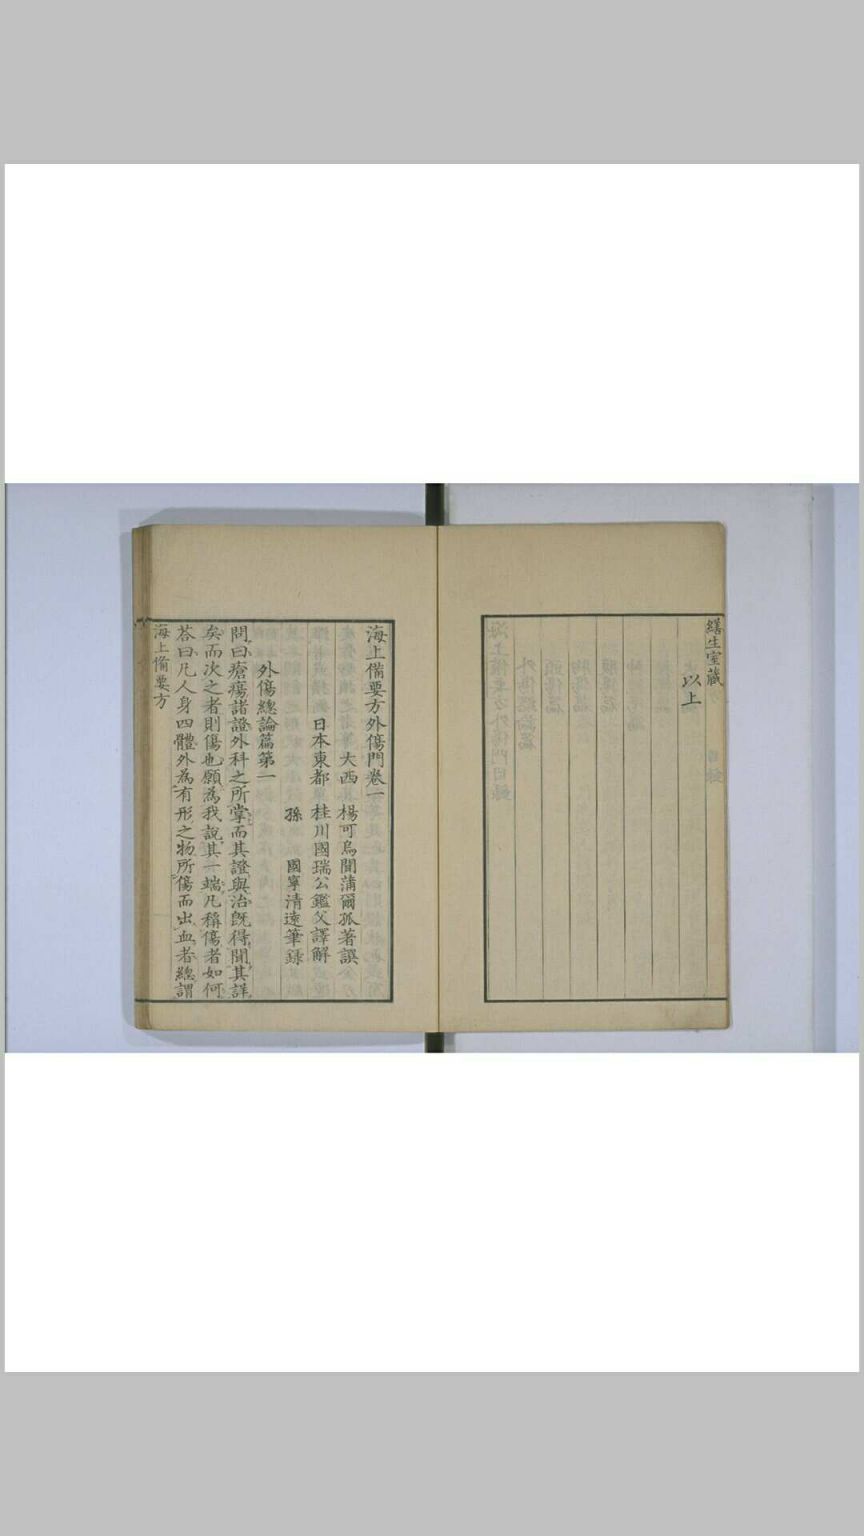 繕生室藏
以上
海上備要方外傷門卷一
大西 楊可烏閒蒲爾孤著譔
日本東都 桂川國瑞公鑑父譯解
孫 國寧清遠筆録
外傷總論篇第一
問曰瘡瘍諸證外科之所掌而其證與治既得聞其詳
矣而次之者則傷也願為我說其一端凡稱傷者如何
荅曰凡人身四體外為有形之物所傷而出血者總謂
海上備要方